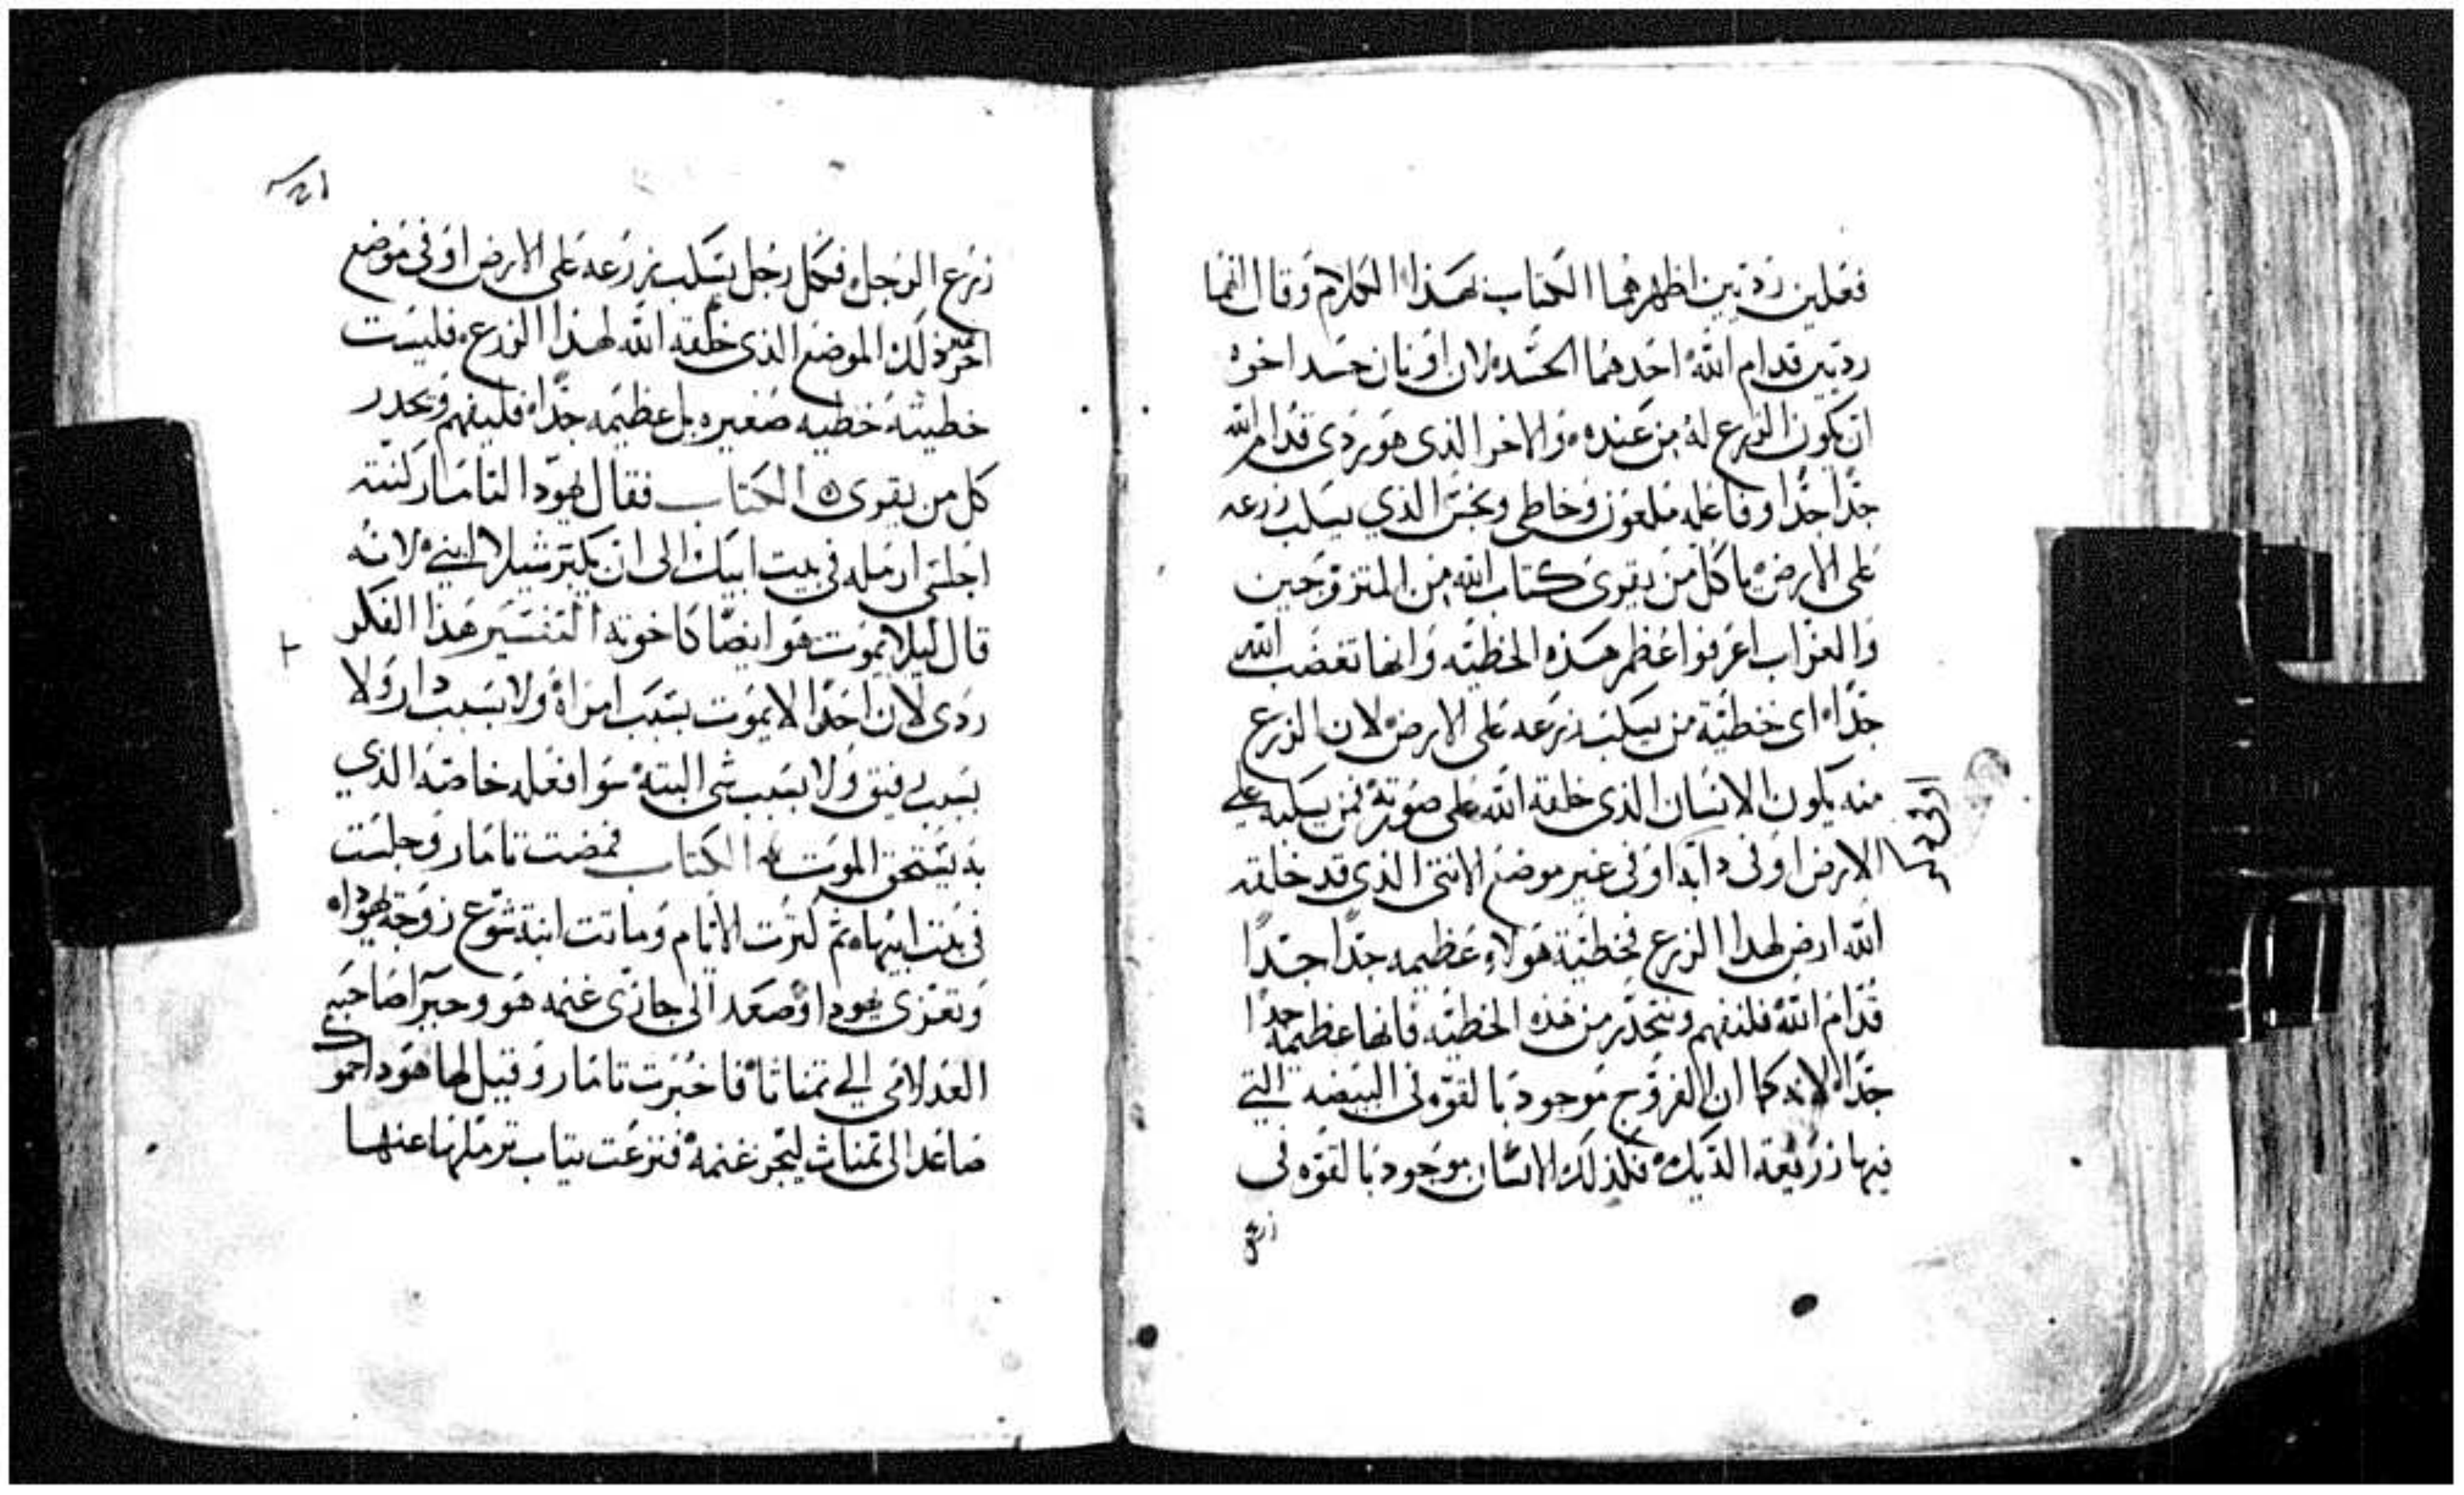 فعلين رديين اظهرهما الكتاب بهذا الكلام وقال انهما
رديين قدام الله احدهما الحسد لان اونان حسد اخوه
ان يكون الزرع له من عنده والاخر الذى هو ردى قدام الله
جدا جدا وفاعله ملعون وخاطى ونجس الذي يسلب زرعه
على الارض يا كل من يقرى كتاب الله من المتزوجين
والعزاب اعرفوا عظم هذه الخطيه وانها تغضب الله
جدا اى خطية من يسلب زرعه على الارض لان الزرع
منه يكون الانسان الذى خلقه الله على صورته فمن يسلبه على
الارض او فى دابه او فى غير موضع الانثى الذى قد خلقه
الله ارض لهدا الزرع فخطية هولاء عظيمه جدا جدا
قدام الله فليفهم ويتحذر من هذه الخطيه فانها عظيمه جدا
جدا لانه كما ان الفروج موجود بالقوه فى البيضه التي
فيها زريعة الديك فكذلك الانسان موجود بالقوه فى
زرع
زرع الرجل فكل رجل يسلب زرعه على الارض او فى موضع
اخر غير ذلك الموضع الذى خلقه الله لهذا الزرع فليست
خطيته خطيه صغيره بل عظيمه جدا فليفهم ويحدر
كل من يقرى الكتاب فقال يهودا لتامار كنته
اجلسى ارمله فى بيت ابيك الى ان يكبر شيلا ابني لانه
قال ليلا يموت هو ايضا كاخوته التفسير هذا الفكر
ردى لان احدا لا يموت بسبب امراة ولا بسبب دار ولا
بسبب رفيق ولا بسبب شى البته سوا فعله خاصه الذي
به يستحق الموت الكتاب فمضت تامار وجلست
فى بيت ابيها ثم كثرت الايام وماتت ابنة شوع زوجة يهودا
وتعزى يهودا وصعد الى جازى غنمه هو وحيرا صاحبه
العدلامى الي تمناثا فاخبرت تامار وقيل لها هودا حموك
صاعد الى تمناث ليجز غنمه فنزعت تياب ترملها عنها